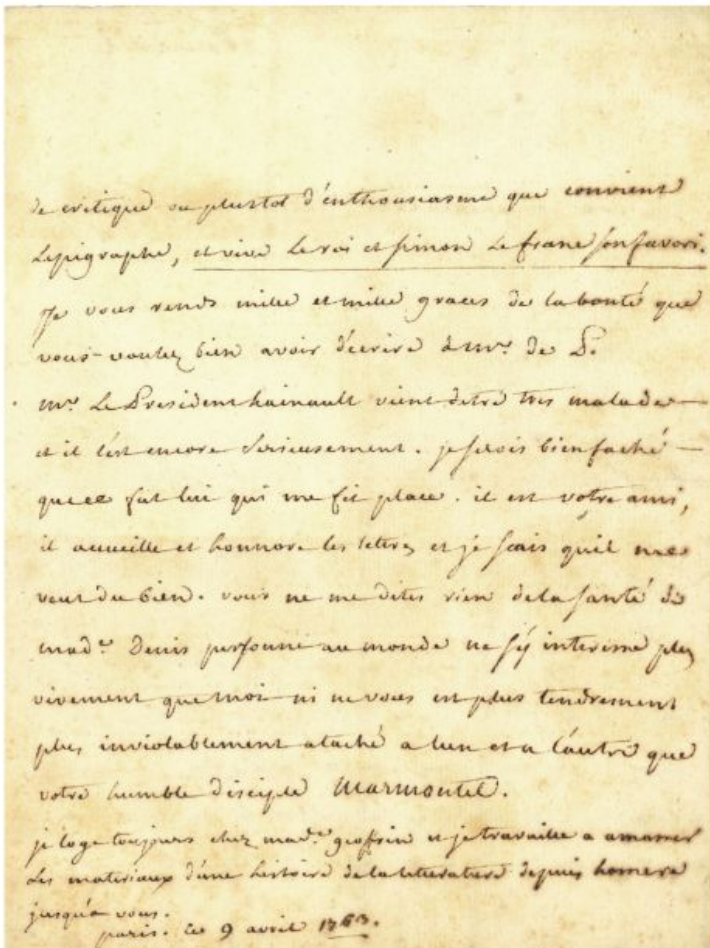 de critique ou plustot d'enthousiasme que convient
L'epigraphe, et vive Le roi et simon Le franc son favori.
Je vous rends mille et mille graces de la bonté que
vous voulez bien avoir d'ecrire a mr. de P.
mr. Le President hainault vient detre tres malade
et il l'est encore serieusement. je serois bien faché
que ce fut lui qui me fit place. il est votre ami,
il accueille et honnore les lettres et je scais qu'il me
veut du bien. vous ne me dites rien de la santé de
made. Denis personne au monde ne s'y interesse plus
vivement que moi ni ne vous est plus tendrement
plus inviolablement ataché a l'un et a l'autre que
votre humble disciple Marmontel.
je loge toujours chez made. geoffrin et je travaille a amasser
des materiaux d'une histoire de la litterature depuis homere
jusqu'a vous.
paris. ce 9 avril 1763.